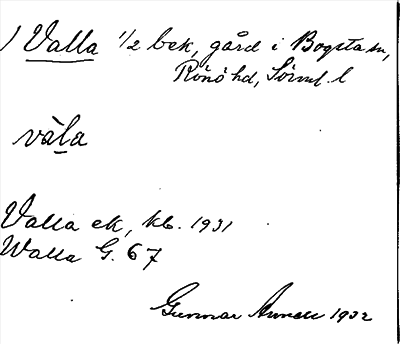 1 Valla 1/2 bek, gård i Bogsta sn,
Rönö hd, Sörml. l
vàla
Valla ek, kb. 1931
Walla G. 67
Gunnar Annell 1932